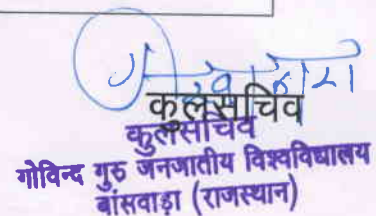 कुलसचिव
कुलसचिव
गोविन्द गुरु जनजातीय विश्वविद्यालय
बांसवाड़ा (राजस्थान)